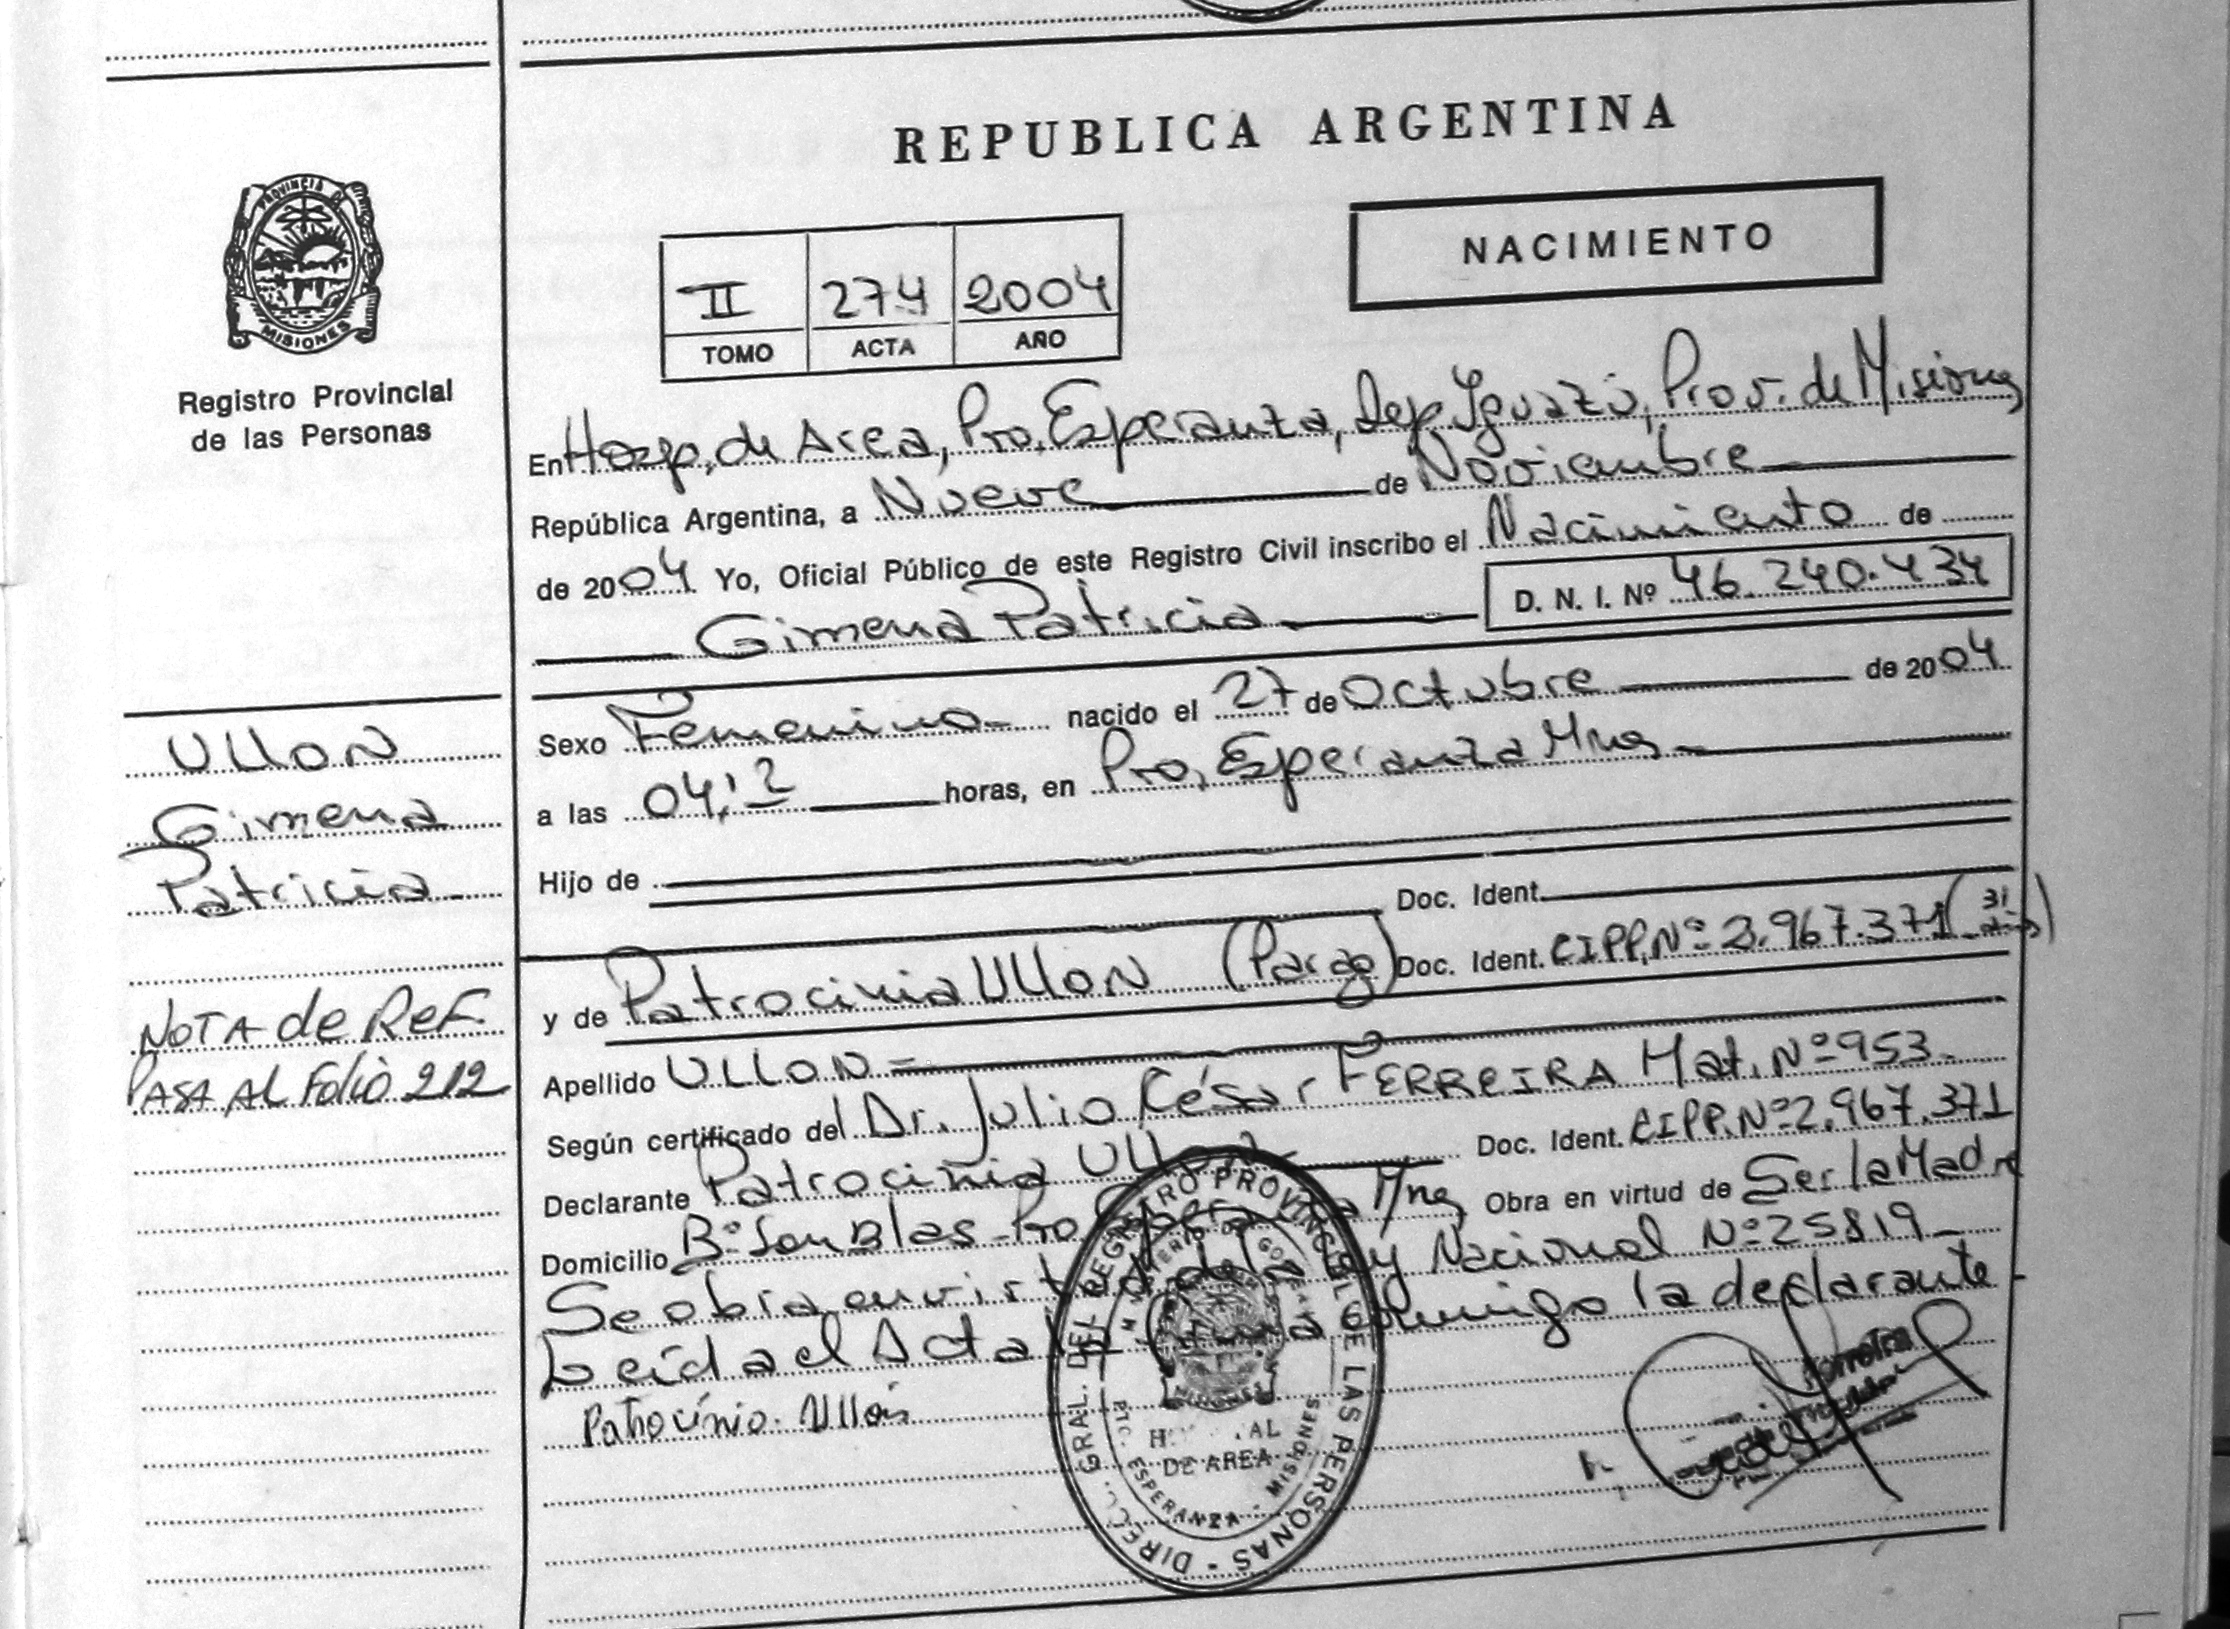 REPUBLICA ARGENTINA
NACIMIENTO
PROVINCIA DE
MISIONES
Registro Provincial
de las Personas
II 274 2004
TOMO ACTA AÑO
En Hosp. de Area, Pto. Esperanza, Dep Iguazú, Prov. de Misiones
República Argentina, a Nueve de Noviembre
de 2004 Yo, Oficial Público de este Registro Civil inscribo el Nacimiento de
Gimena Patricia D. N. I. Nº 46.240.434
Sexo Femenino nacido el 27 de Octubre de 2004
a las 04:12 horas, en Pto. Esperanza Mnes
Hijo de
Doc. Ident.
y de Patrocinia Ullon (Parag) Doc. Ident. CIPP. Nº 2.967.371 (31 años)
Apellido Ullon =
Según certificado del Dr. Julio César FERREIRA Mat. Nº 953
Declarante Patrocinia Ullon Doc. Ident. CIPP. Nº 2.967.371
Domicilio Bº San Blas Pto Esperanza Mnes Obra en virtud de Ser la Madre
Se obra en virtud de la Ley Nacional Nº 25819
Leida el Acta firma conmigo la declarante
Patrocinia Ullon
Ullon
Gimena
Patricia
NOTA de REF.
PASA AL Folio 212
DIRECC. GRAL. DEL REGISTRO PROVINCIAL DE LAS PERSONAS
MINISTERIO DE GOBIERNO
MISIONES
HOSPITAL
DE AREA
PTO. ESPERANZA - MISIONES
Ferreira